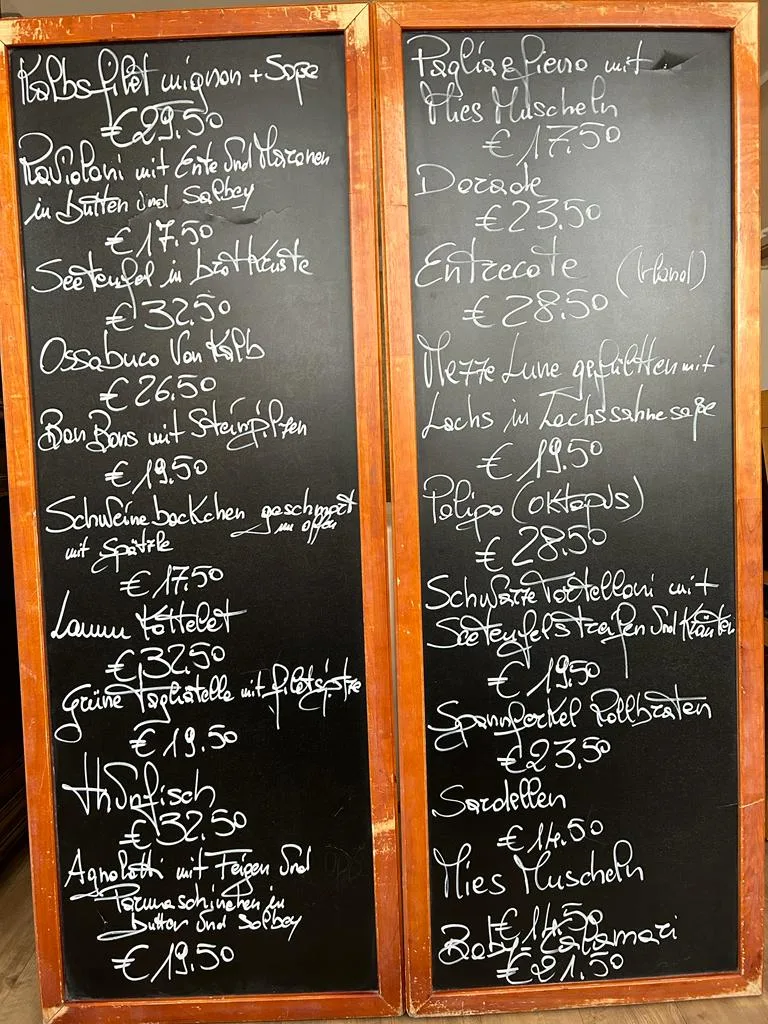 Kalbsfilet mignon + Soße
€ 29.50
Ravioloni mit Ente und Maronen
in Butter und Salbey
€ 17.50
Seeteufel in brotkruste
€ 32.50
Ossabuco Von Kalb
€ 26.50
Bon Bons mit Steinpilzen
€ 19.50
Schweinebackchen geschmort
im offen
mit Spätzle
€ 17.50
Lamm Kottelet
€ 32.50
Grüne Tagliatelle mit filetspitze
€ 19.50
Thunfisch
€ 32.50
Agnolotti mit Feigen und
Parmaschinchen in
butter und Salbey
€ 19.50
Paglia e fieno mit
Mies Muscheln
€ 17.50
Dorade
€ 23.50
Entrecote (Irland)
€ 28.50
Mezze Lune gefüllten mit
Lachs in Lachssahnesoße
€ 19.50
Polipo (oktapus)
€ 28.50
Schwarze Tortelloni mit
Seeteufelstreifen und Kräuter
€ 19.50
Spannferkel Rollbraten
€ 23.50
Sardellen
€ 14.50
Mies Muscheln
€ 14.50
Baby-Calamari
€ 21.50